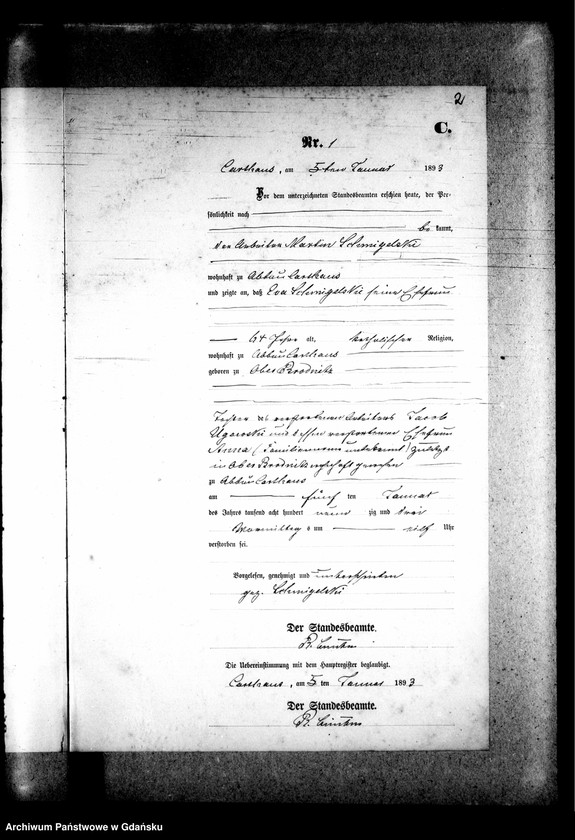 2
C.
Nr. 1
Carthaus, am 5ten Januar 1893
Vor dem unterzeichneten Standesbeamten erschien heute, der Per-
sönlichkeit nach
be kannt,
der Arbeiter Martin Schmigelski
wohnhaft zu Abbau Carthaus
und zeigte an, daß Eva Schmigelski seine Ehefrau
64 Jahre alt, katholischer Religion,
wohnhaft zu Abbau Carthaus
geboren zu Ober Brodnitz
Tochter des verstorbenen Arbeiters Jacob
und dessen verstorbenen Ehefrau
Anna (Familienname unbekannt) zuletzt
in Ober Brodnitz wohnhaft gewesen
zu Abbau Carthaus
am fünf ten Januar
des Jahres tausend acht hundert neun zig und drei
Vormittags um Uhr
verstorben sei.
Vorgelesen, genehmigt und unterschrieben
gez. Schmigelski
Der Standesbeamte.
Die Uebereinstimmung mit dem Hauptregister beglaubigt.
Carthaus, am 5 ten Januar 1893
Der Standesbeamte.
Archiwum Państwowe w Gdańsku